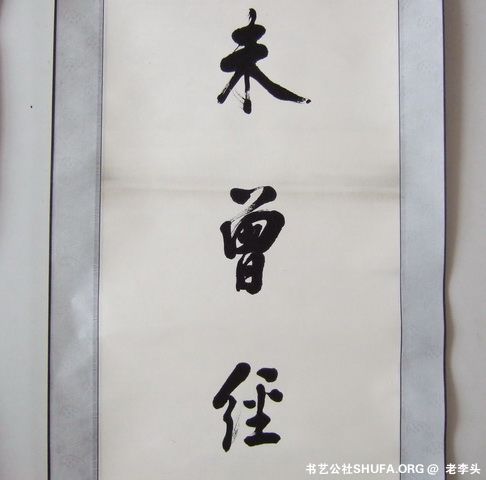 未曾經
书艺公社SHUFA.ORG @ 老李头